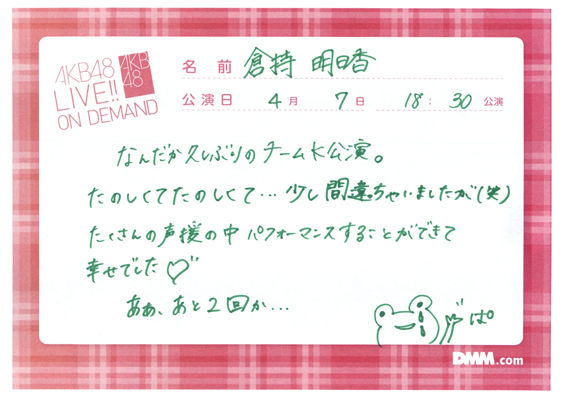 AKB48
LIVE!!
ON DEMAND
AKB
48
名前 倉持 明日香
公演日 4月 7日 18:30 公演
なんだか久しぶりのチームK公演。
たのしくてたのしくて…少し間違っちゃいましたが(笑)
たくさんの声援の中パフォーマンスすることができて
幸せでした♡
あぁ、あと2回か…
ぱ。
DMM.com